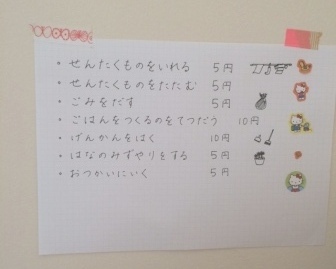 ・せんたくものをいれる 5円
・せんたくものをたたむ 5円
・ごみをだす 5円
・ごはんをつくるのをてつだう 10円
・げんかんをはく 10円
・はなのみずやりをする 5円
・おつかいにいく 5円